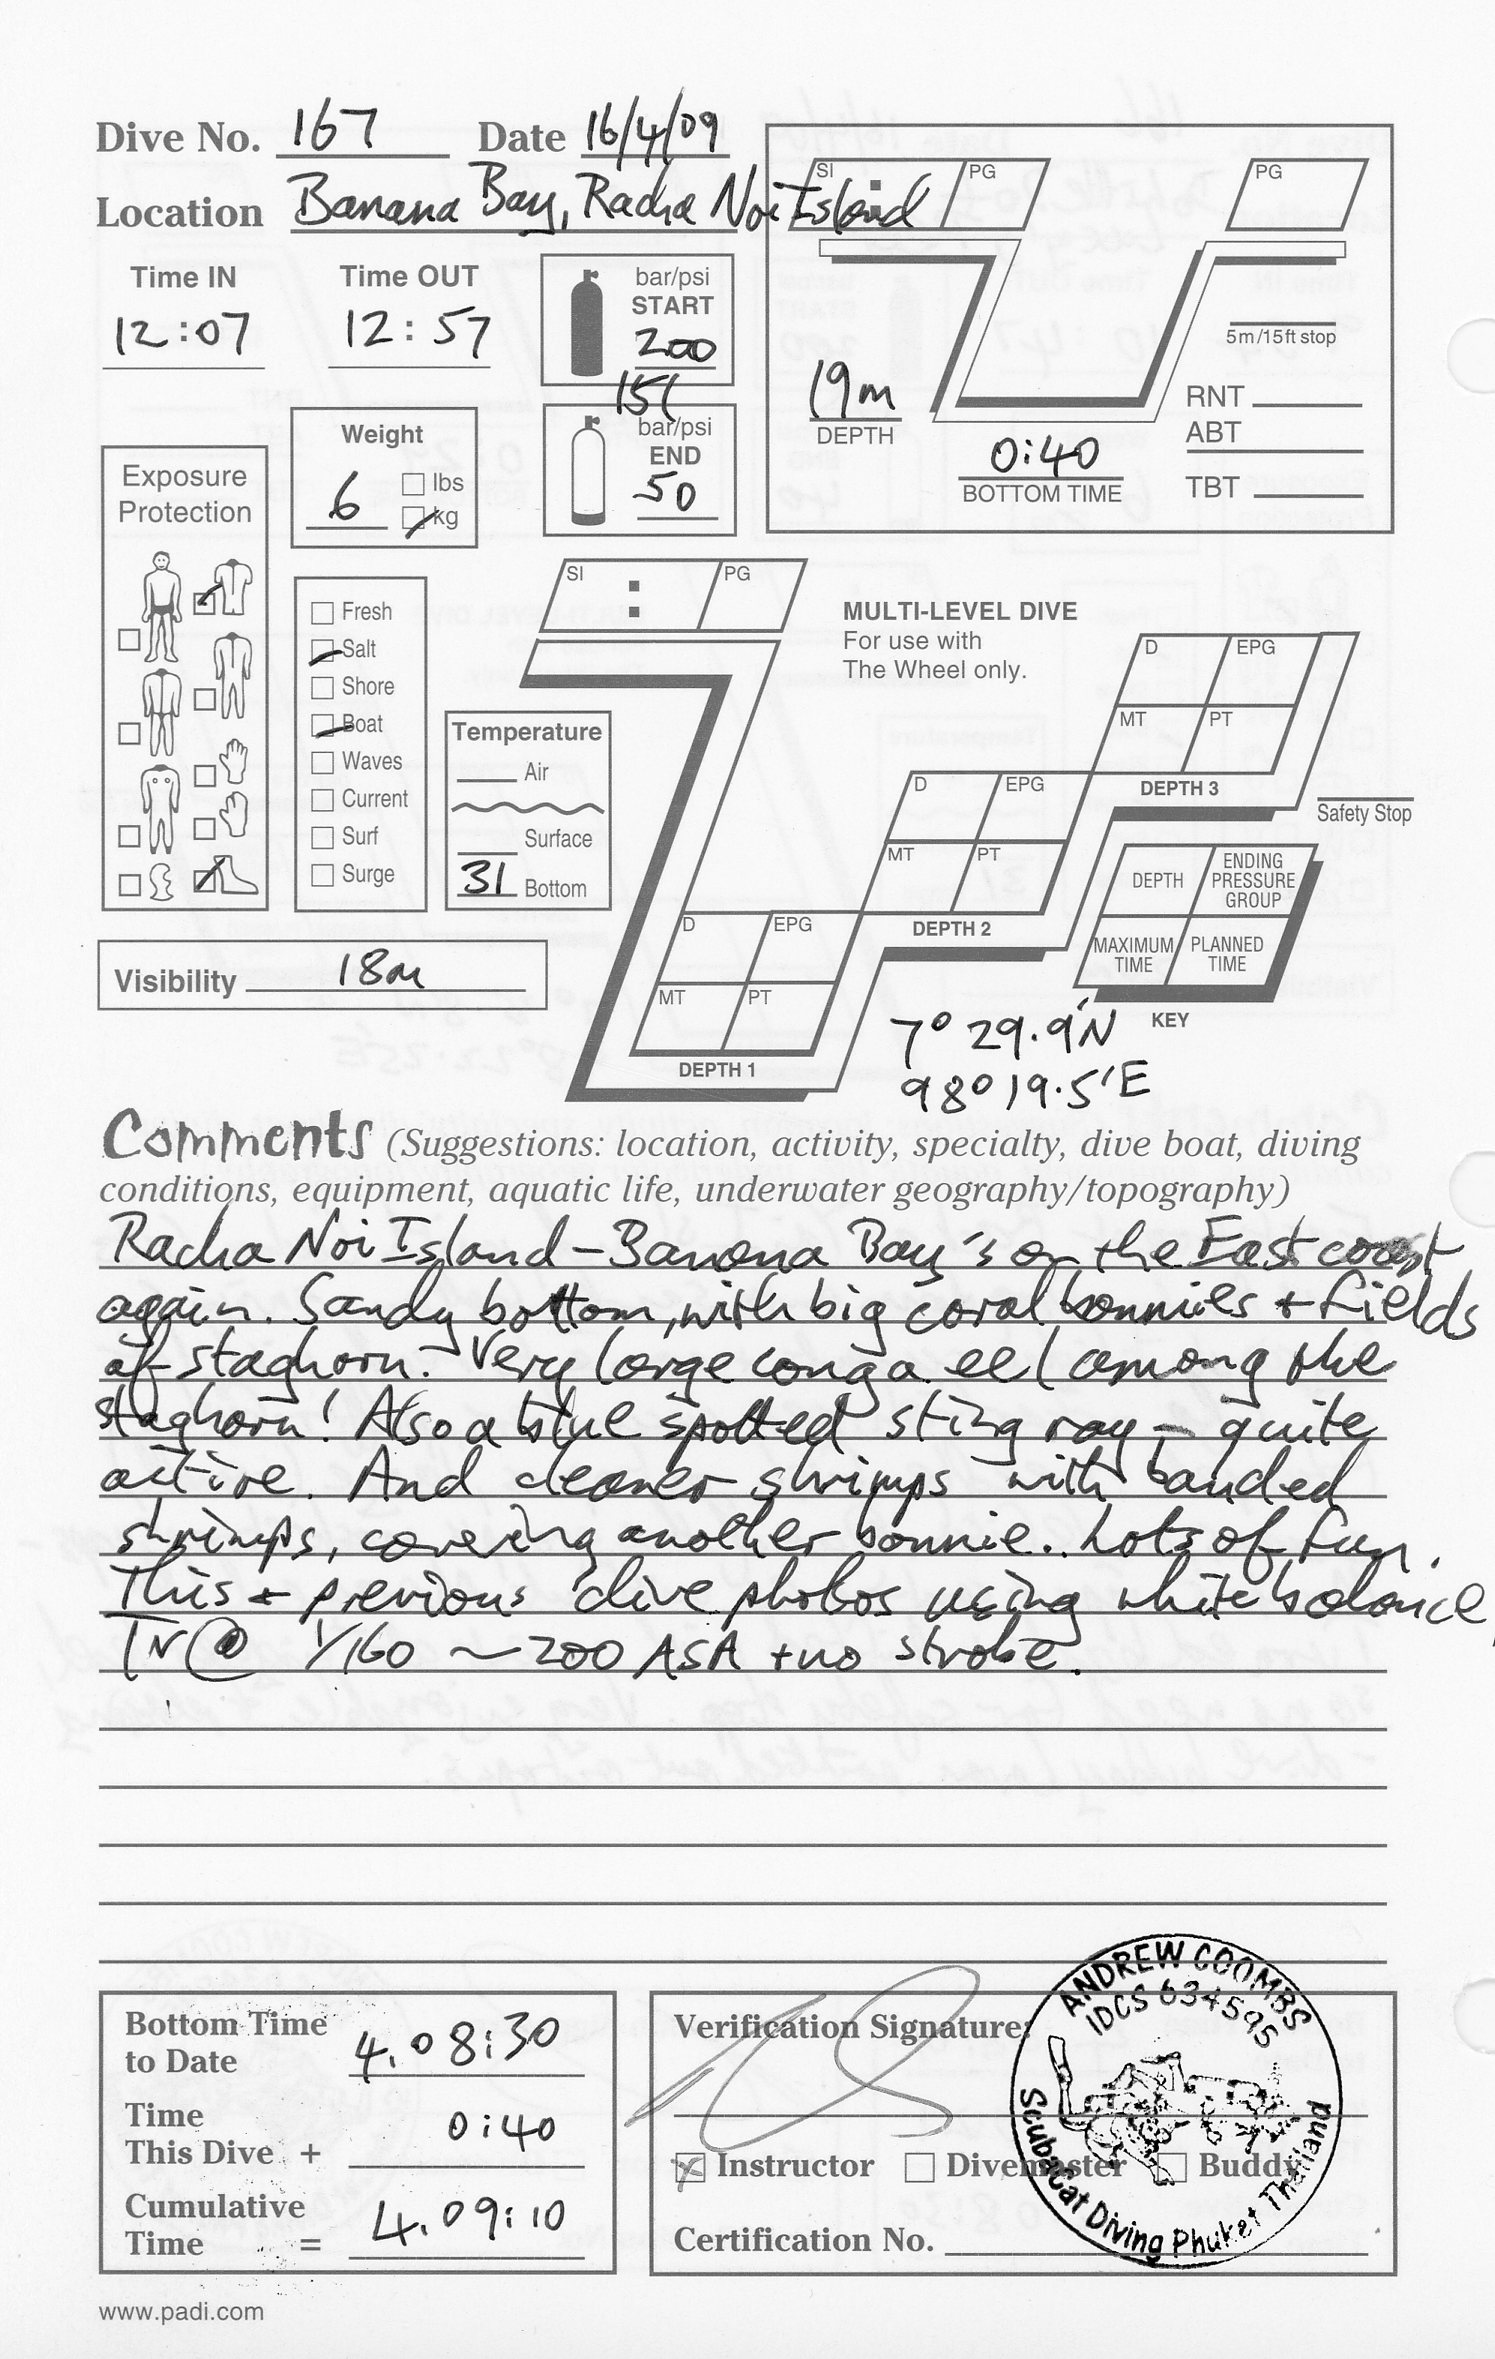 Dive No. 167 Date 16/4/09
Location Banana Bay, Racha Noi Island
SI : PG PG
Time IN Time OUT
12:07 12:57
bar/psi
START
200
151
bar/psi
END
50
19m
DEPTH
0:40
BOTTOM TIME
5m/15ft stop
RNT
ABT
TBT
Weight
6 lbs
kg
Exposure
Protection
Fresh
Salt
Shore
Boat
Waves
Current
Surf
Surge
Temperature
Air
Surface
31 Bottom
Visibility 18m
SI : PG
MULTI-LEVEL DIVE
For use with
The Wheel only.
D EPG
MT PT
DEPTH 3
D EPG
MT PT
DEPTH 2
D EPG
MT PT
DEPTH 1
Safety Stop
DEPTH ENDING PRESSURE GROUP
MAXIMUM TIME PLANNED TIME
KEY
7° 29.9'N
98° 19.5'E
Comments (Suggestions: location, activity, specialty, dive boat, diving
conditions, equipment, aquatic life, underwater geography/topography)
Racha Noi Island - Banana Bay's on the East coast
again. Sandy bottom, with big coral bommies + fields
of staghorn. Very large conga eel among the
staghorn! Also a blue spotted sting ray - quite
active. And cleaner shrimps with banded
shrimps, covering another bonnie.. Lots of fun.
This + previous dive photos using white balance,
Tv @ 1/160 ~ 200 ASA + no strobe.
Bottom Time
to Date 4.08:30
Time
This Dive + 0:40
Cumulative
Time = 4.09:10
Verification Signature:
Instructor Divemaster Buddy
Certification No.
ANDREW COOMBS
IDCS 634595
Scubacat Diving Phuket Thailand
www.padi.com